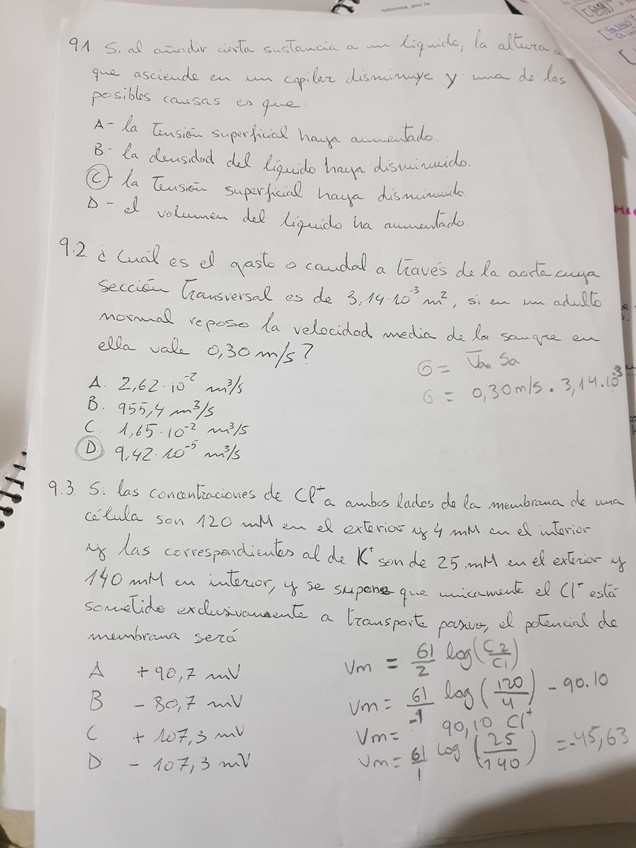 9.1 Si al añadir cierta sustancia a un líquido, la altura a
que asciende en un capilar disminuye y una de las
posibles causas es que
A- la Tensión superficial haya aumentado.
B- la densidad del líquido haya disminuido.
C- la Tensión superficial haya disminuido.
D- el volumen del líquido ha aumentado
9.2. ¿Cuál es el gasto o caudal a través de la aorta cuya
sección Transversal es de 3,14·10⁻³ m², si en un adulto
normal reposo la velocidad media de la sangre en
ella vale 0,30 m/s?
G = Va. Sa
G = 0,30 m/s · 3,14·10⁻³
A. 2,62·10⁻² m³/s
B. 955,4 m³/s
C. 1,65·10⁻² m³/s
D. 9,42·10⁻⁵ m³/s
9.3. Si las concentraciones de Cl⁻ a ambos lados de la membrana de una
célula son 120 mM en el exterior y 4 mM en el interior
y las correspondientes al de K⁺ son de 25 mM en el exterior y
140 mM en interior, y se supone que unicamente el Cl⁻ está
sometido exclusivamente a transporte pasivo, el potencial de
membrana será
A + 90,7 mV
B - 80,7 mV
C + 107,3 mV
D - 107,3 mV
Vm = 61/2 log (C2/C1)
Vm = 61/-1 log (120/4) - 90.10
Vm = 90,10 Cl⁺
Vm = 61/1 log (25/140) = -45,63